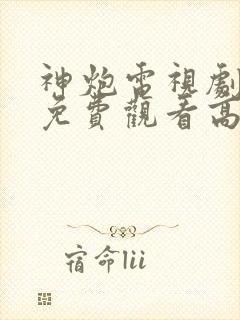 神炮電視劇
免費觀看高
宿命lii